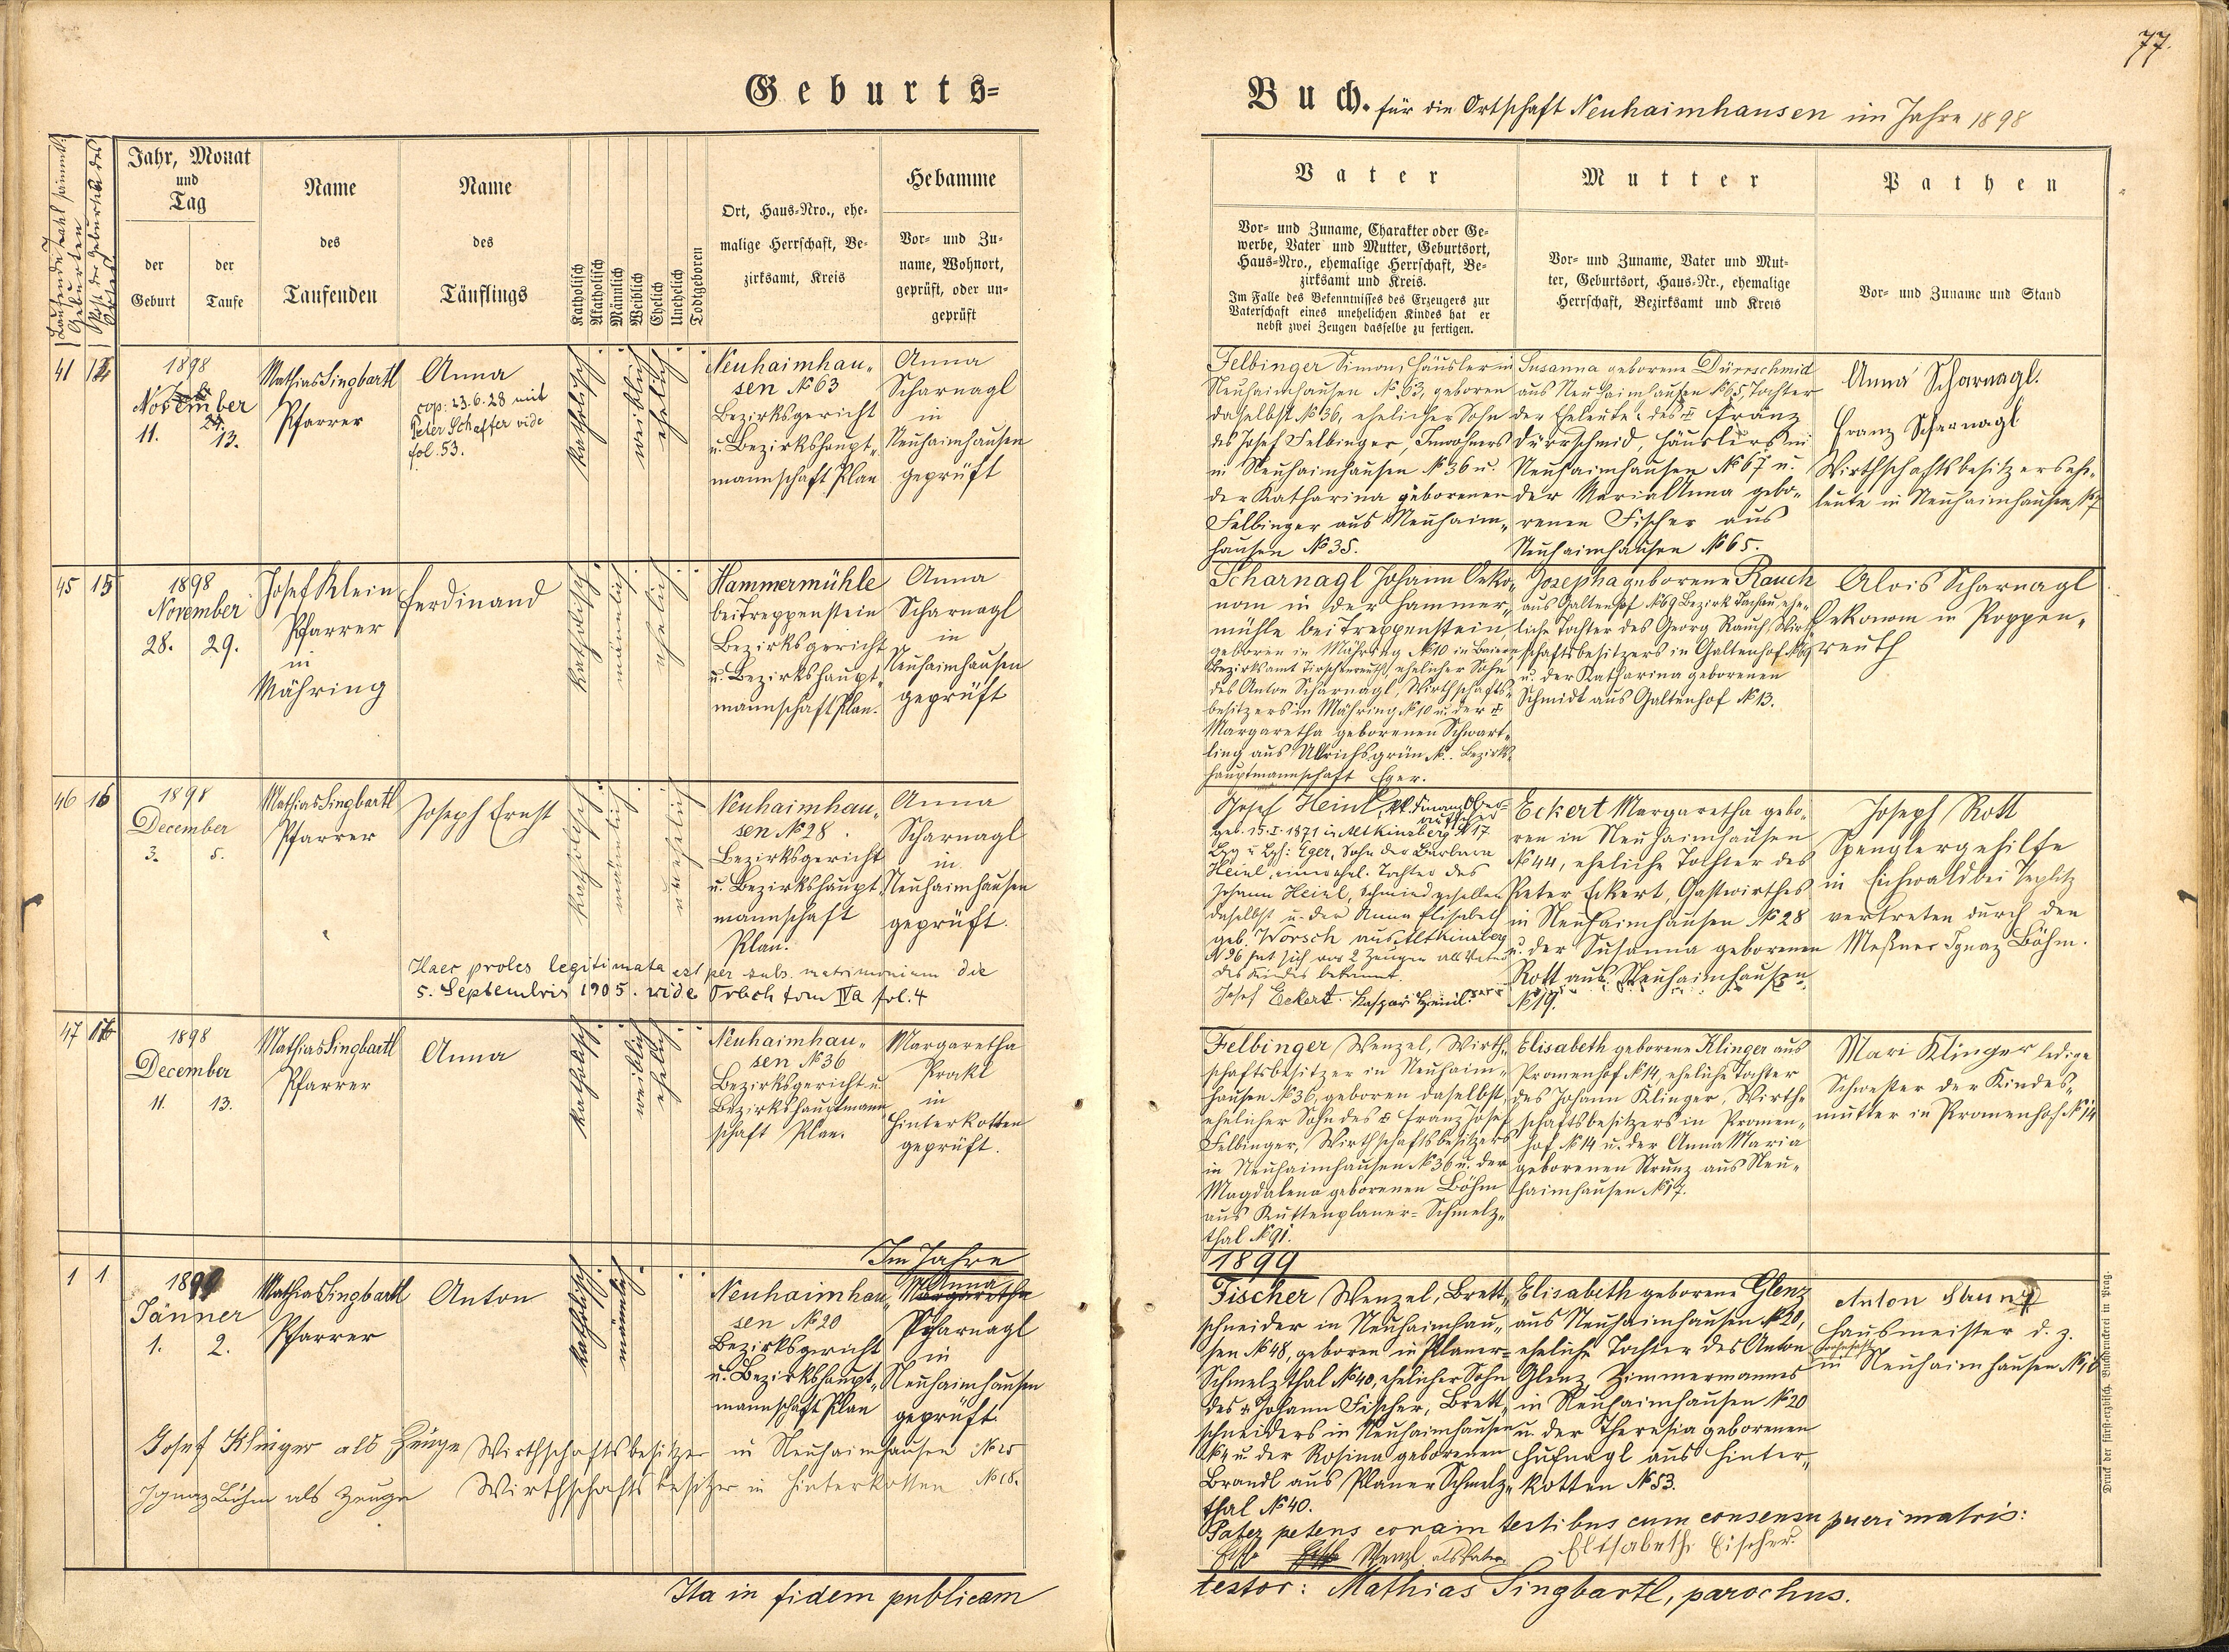 77.
Geburts=
Buch. für die Ortschaft Neuhaimhausen im Jahre 1898
Jahr, Monat
und
Tag
der
Geburt
der
Taufe
Name
des
Taufenden
Name
des
Täuflings
Katholisch
Akatholisch
Männlich
Weiblich
Ehelich
Unehelich
Todtgeboren
Ort, Haus=Nro., ehe=
malige Herrschaft, Be=
zirksamt, Kreis
Hebamme
Vor= und Zu=
name, Wohnort,
geprüft, oder un=
geprüft
Vater
Vor= und Zuname, Charakter oder Ge=
werbe, Vater und Mutter, Geburtsort,
Haus=Nro., ehemalige Herrschaft, Be=
zirksamt und Kreis.
Im Falle des Bekenntnisses des Erzeugers zur
Vaterschaft eines unehelichen Kindes hat er
nebst zwei Zeugen dasselbe zu fertigen.
Mutter
Vor= und Zuname, Vater und Mut=
ter, Geburtsort, Haus=Nr., ehemalige
Herrschaft, Bezirksamt und Kreis
Pathen
Vor= und Zuname und Stand
1898
November
11.
13.
Mathias Singbartl
Pfarrer
Anna
cop: 23.6.28 mit
Peter Schaffer vide
fol. 53.
katholisch
weiblich
ehelich
Neuhaimhau„
sen № 63
Bezirksgericht
u. Bezirkshaupt„
mannschaft Plan
Anna
Scharnagl
in
Neuhaimhausen
geprüft
Felbinger Simon, Häusler in
Neuhaimhausen № 63, geboren
daselbst № 36, ehelicher Sohn
des Josef Felbinger, Inwohners
in Neuhaimhausen № 36 u.
der Katharina geborenen
Felbinger aus Neuhaim„
hausen № 35.
Susanna geborene Dürrschmid
aus Neuhaimhausen № 65, Tochter
der Eheleute: des Franz
Dürrschmid, Häuslers in
Neuhaimhausen № 67 u.
der Maria Anna gebo„
renen Fischer aus
Neuhaimhausen № 65.
Anna Scharnagl.
Franz Scharnagl
Wirthschaftsbesitzersehe„
leute in Neuhaimhausen
45 15
1898
November
28. 29.
Josef Klein
Pfarrer
in
Mähring
Ferdinand
katholisch
männlich
ehelich
Hammermühle
bei Treppenstein
Bezirksgericht
u. Bezirkshaupt„
mannschaft Plan.
Anna
Scharnagl
in
Neuhaimhausen
geprüft
Scharnagl Johann Oeko„
nom in der Hammer„
mühle bei Treppenstein
geboren in Mähring № 10 in Baiern
Bezirksamt Tirschenreuth, ehelicher Sohn
des Anton Scharnagl, Wirthschafts„
besitzers in Mähring № 10 u. der
Margaretha geborenen Schwart„
ling aus Ulrichsgrün №.. Bezirks„
hauptmannschaft Eger.
Josepha geborene Rauch
aus Galtenhof № 69 Bezirk Tachau, ehe„
liche Tochter des Georg Rauch, Wirth„
schaftsbesitzers in Galtenhof № 69
u. der Katharina geborenen
Schmidt aus Galtenhof № 13.
Alois Scharnagl
Oekonom in Poppen„
reuth
46 16
1898
December
3. 5.
Mathias Singbartl
Pfarrer
Joseph Ernst
katholisch
männlich
unehelich
Neuhaimhau„
sen № 28
Bezirksgericht
u. Bezirkshaupt„
mannschaft
Plan.
Anna
Scharnagl
in
Neuhaimhausen
geprüft.
Haec proles legitimata est per subs. matrimonium die
5. Septembris 1905. vide Trbch tom IVa fol. 4
Josef Heinl, k.k. Finanz Ober-
aufseher
geb. 15.I.1871 in Altkinsberg № 17
Bzg u. Bzh: Eger, Sohn der Barbara
Heinl, einer ehel. Tochter des
Johann Heinl, Schmiedgesellen
daselbst u. der Anna Elisabeth
geb. Worsch aus Altkinsberg
№ 26 hat sich vor 2 Zeugen als Vater
des Kindes bekannt
Josef Eckert. Kaspar Heinl.
Eckert Margaretha gebo„
ren in Neuhaimhausen
№ 44, eheliche Tochter des
Peter Eckert, Gastwirthes
in Neuhaimhausen № 28
u. der Susanna geborenen
Rott aus Neuhaimhausen
№ 19.
Joseph Rott
Spenglergehilfe
in Eichwald bei Teplitz
vertreten durch den
Meßner Ignaz Böhm.
47
1898
December
11. 13.
Mathias Singbartl
Pfarrer
Anna
katholisch
weiblich
ehelich
Neuhaimhau„
sen № 36
Bezirksgericht u.
Bezirkshauptmann
schaft Plan.
Margaretha
Prokl
in
Hinterkotten
geprüft.
Felbinger Wenzel, Wirth„
schaftsbesitzer in Neuhaim„
hausen № 36, geboren daselbst,
ehelicher Sohn des Franz Josef
Felbinger, Wirthschaftsbesitzers
in Neuhaimhausen № 36 u. der
Magdalena geborenen Böhm
aus Kuttenplaner=Schmelz„
thal № 91.
Elisabeth geborene Klinger aus
Promenhof № 14, eheliche Tochter
des Johann Klinger, Wirth„
schaftsbesitzers in Promen„
hof № 14 u. der Anna Maria
geborenen Strunz aus Neu„
haimhausen № 17.
Mari Klinger ledige
Schwester der Kindes„
mutter in Promenhof № 14
Im Jahre
1899
1 1
1899
Jänner
1. 2.
Mathias Singbartl
Pfarrer
Anton
katholisch
männlich
Neuhaimhau„
sen № 20
Bezirksgericht
u. Bezirkshaupt„
mannschaft Plan
Anna
Margaretha
Scharnagl
in
Neuhaimhausen
geprüft.
Fischer Wenzel, Brett„
schneider in Neuhaimhau„
sen № 48, geboren in Planer=
Schmelzthal № 40, ehelicher Sohn
des Johann Fischer, Brett„
schneiders in Neuhaimhausen
№ 4 u. der Rosina geborenen
Brandl aus Planer Schmelz„
thal № 40.
Elisabeth geborene Glenz
aus Neuhaimhausen № 20,
eheliche Tochter des Anton
Glenz Zimmermannes
in Neuhaimhausen № 20
u. der Theresia geborenen
Hufnagl aus Hinter„
kotten № 53.
Anton
Hausmeister d. z.
wohnhaft
in Neuhaimhausen
Josef Klinger als Zeuge Wirthschaftsbesitzer in Neuhaimhausen
Ignaz Böhm als Zeuge Wirthschaftsbesitzer in Hinterkotten № 18.
Pater petens coram testibus cum consensu pueri matris:
Wenzl als Vater. Elisabeth Fischer.
Ita in fidem publicam
testor: Mathias Singbartl, parochus.